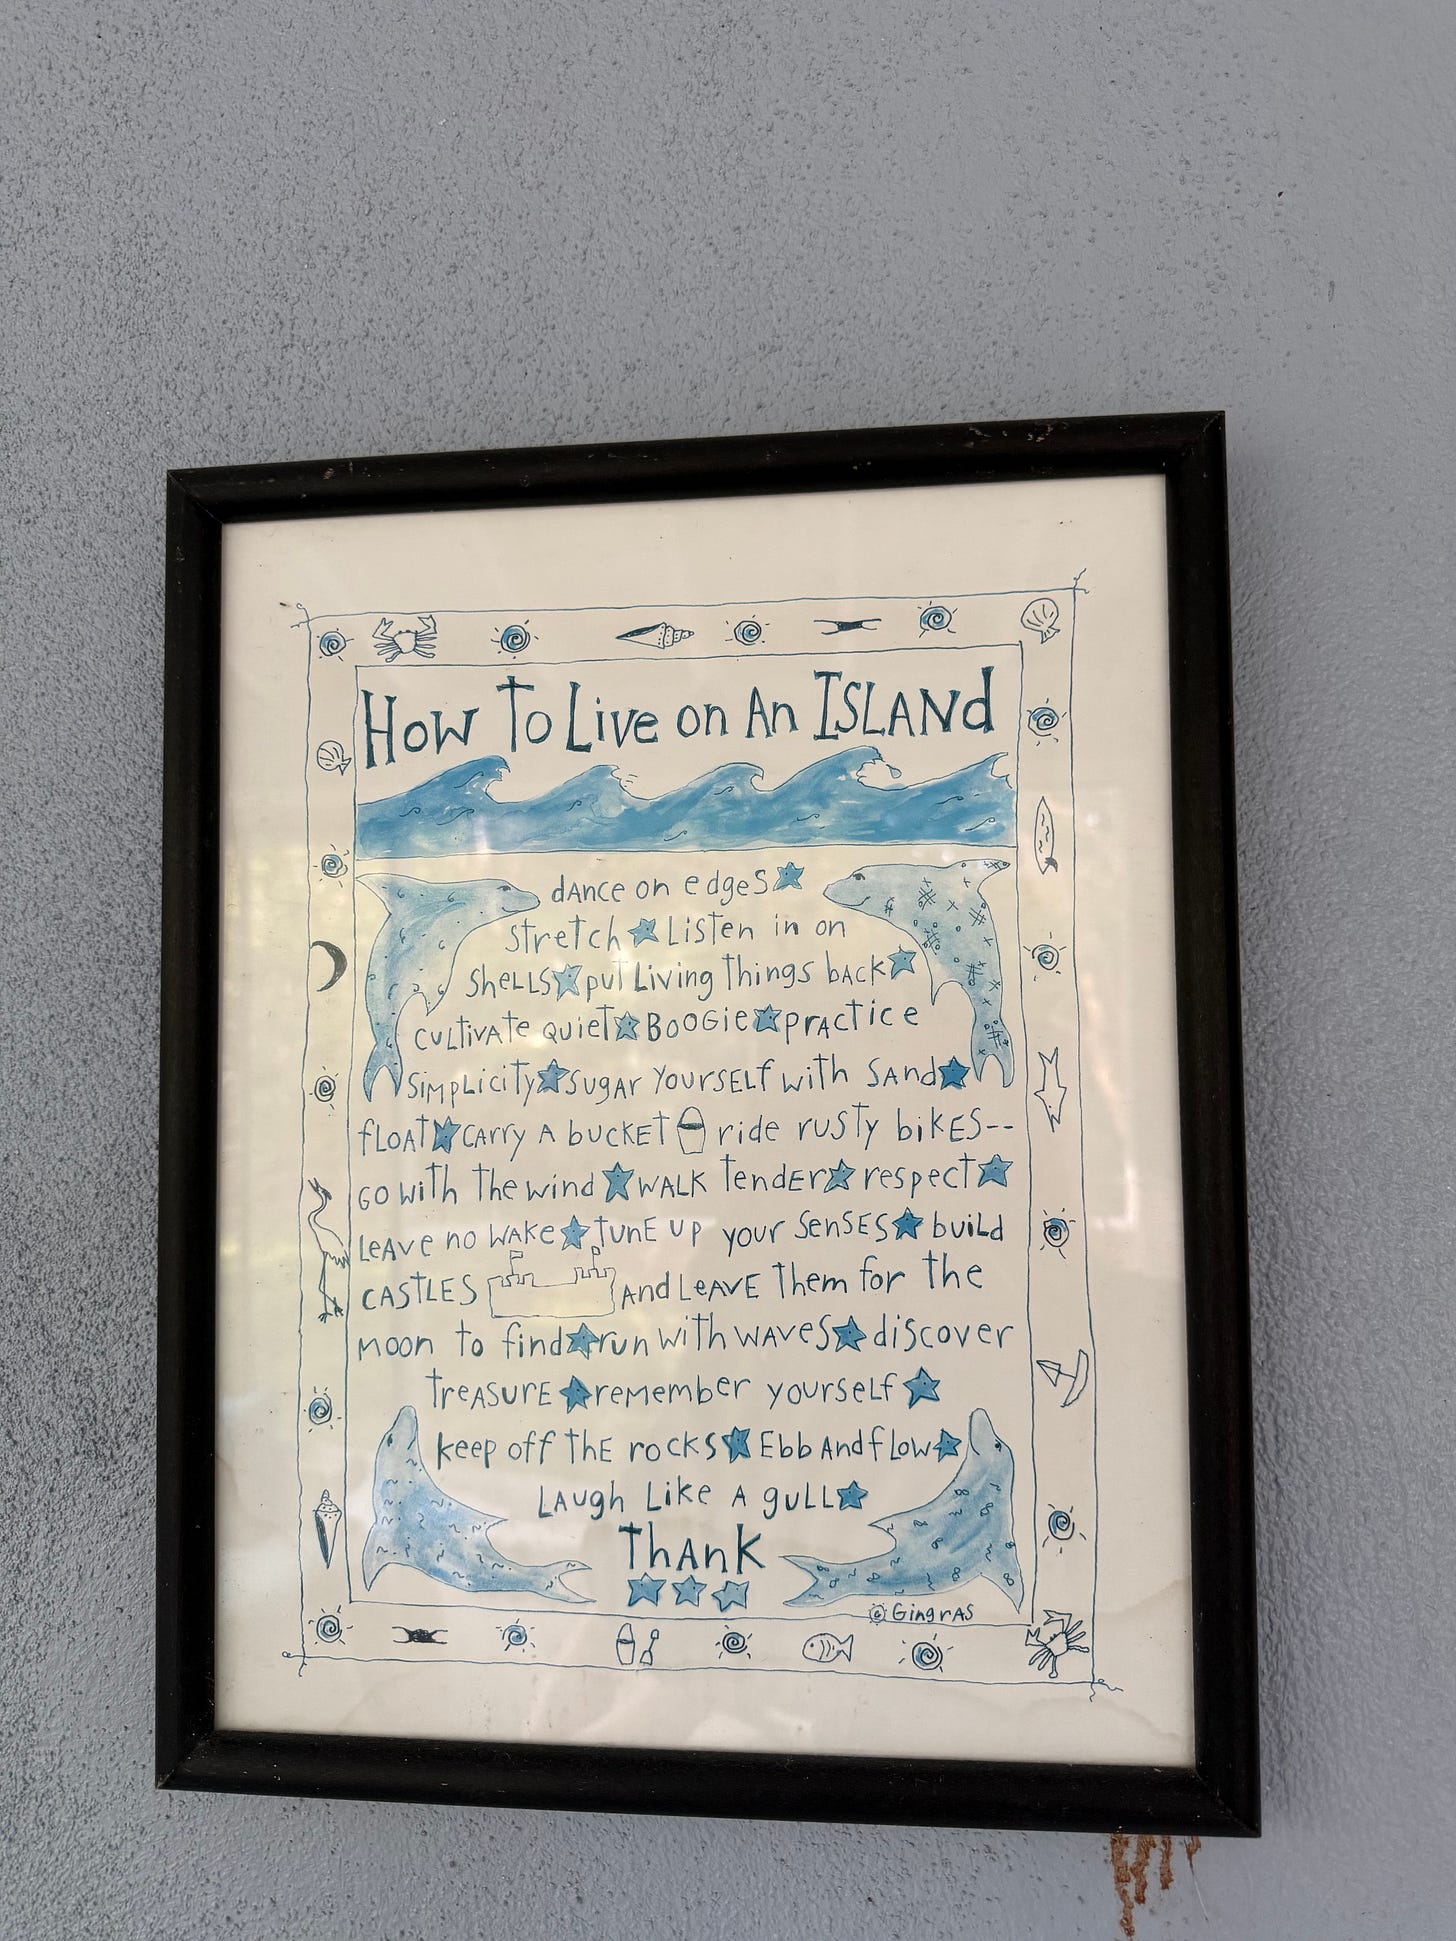 How To Live on An ISLANd
dAnce on edgeS
stretch Listen in on
sheLLS put Living things bACK
cuLtivAte quiet BOOGie prActice
siMpLicity sugAr yourSELf with SANd
fLOAt cArry A bucKET ride rusty biKES--
GO with the wind WALK tendEr respect
LEAVE no WAKe tunE up your SenSES buiLd
CASTLES And LeAVE them for the
moon to find run with wAVeS discover
treASurE remember yourSeLf
Keep off thE rocKS Ebb And fLOW
LAugh LiKe A guLL
ThAnK
© GingrAS